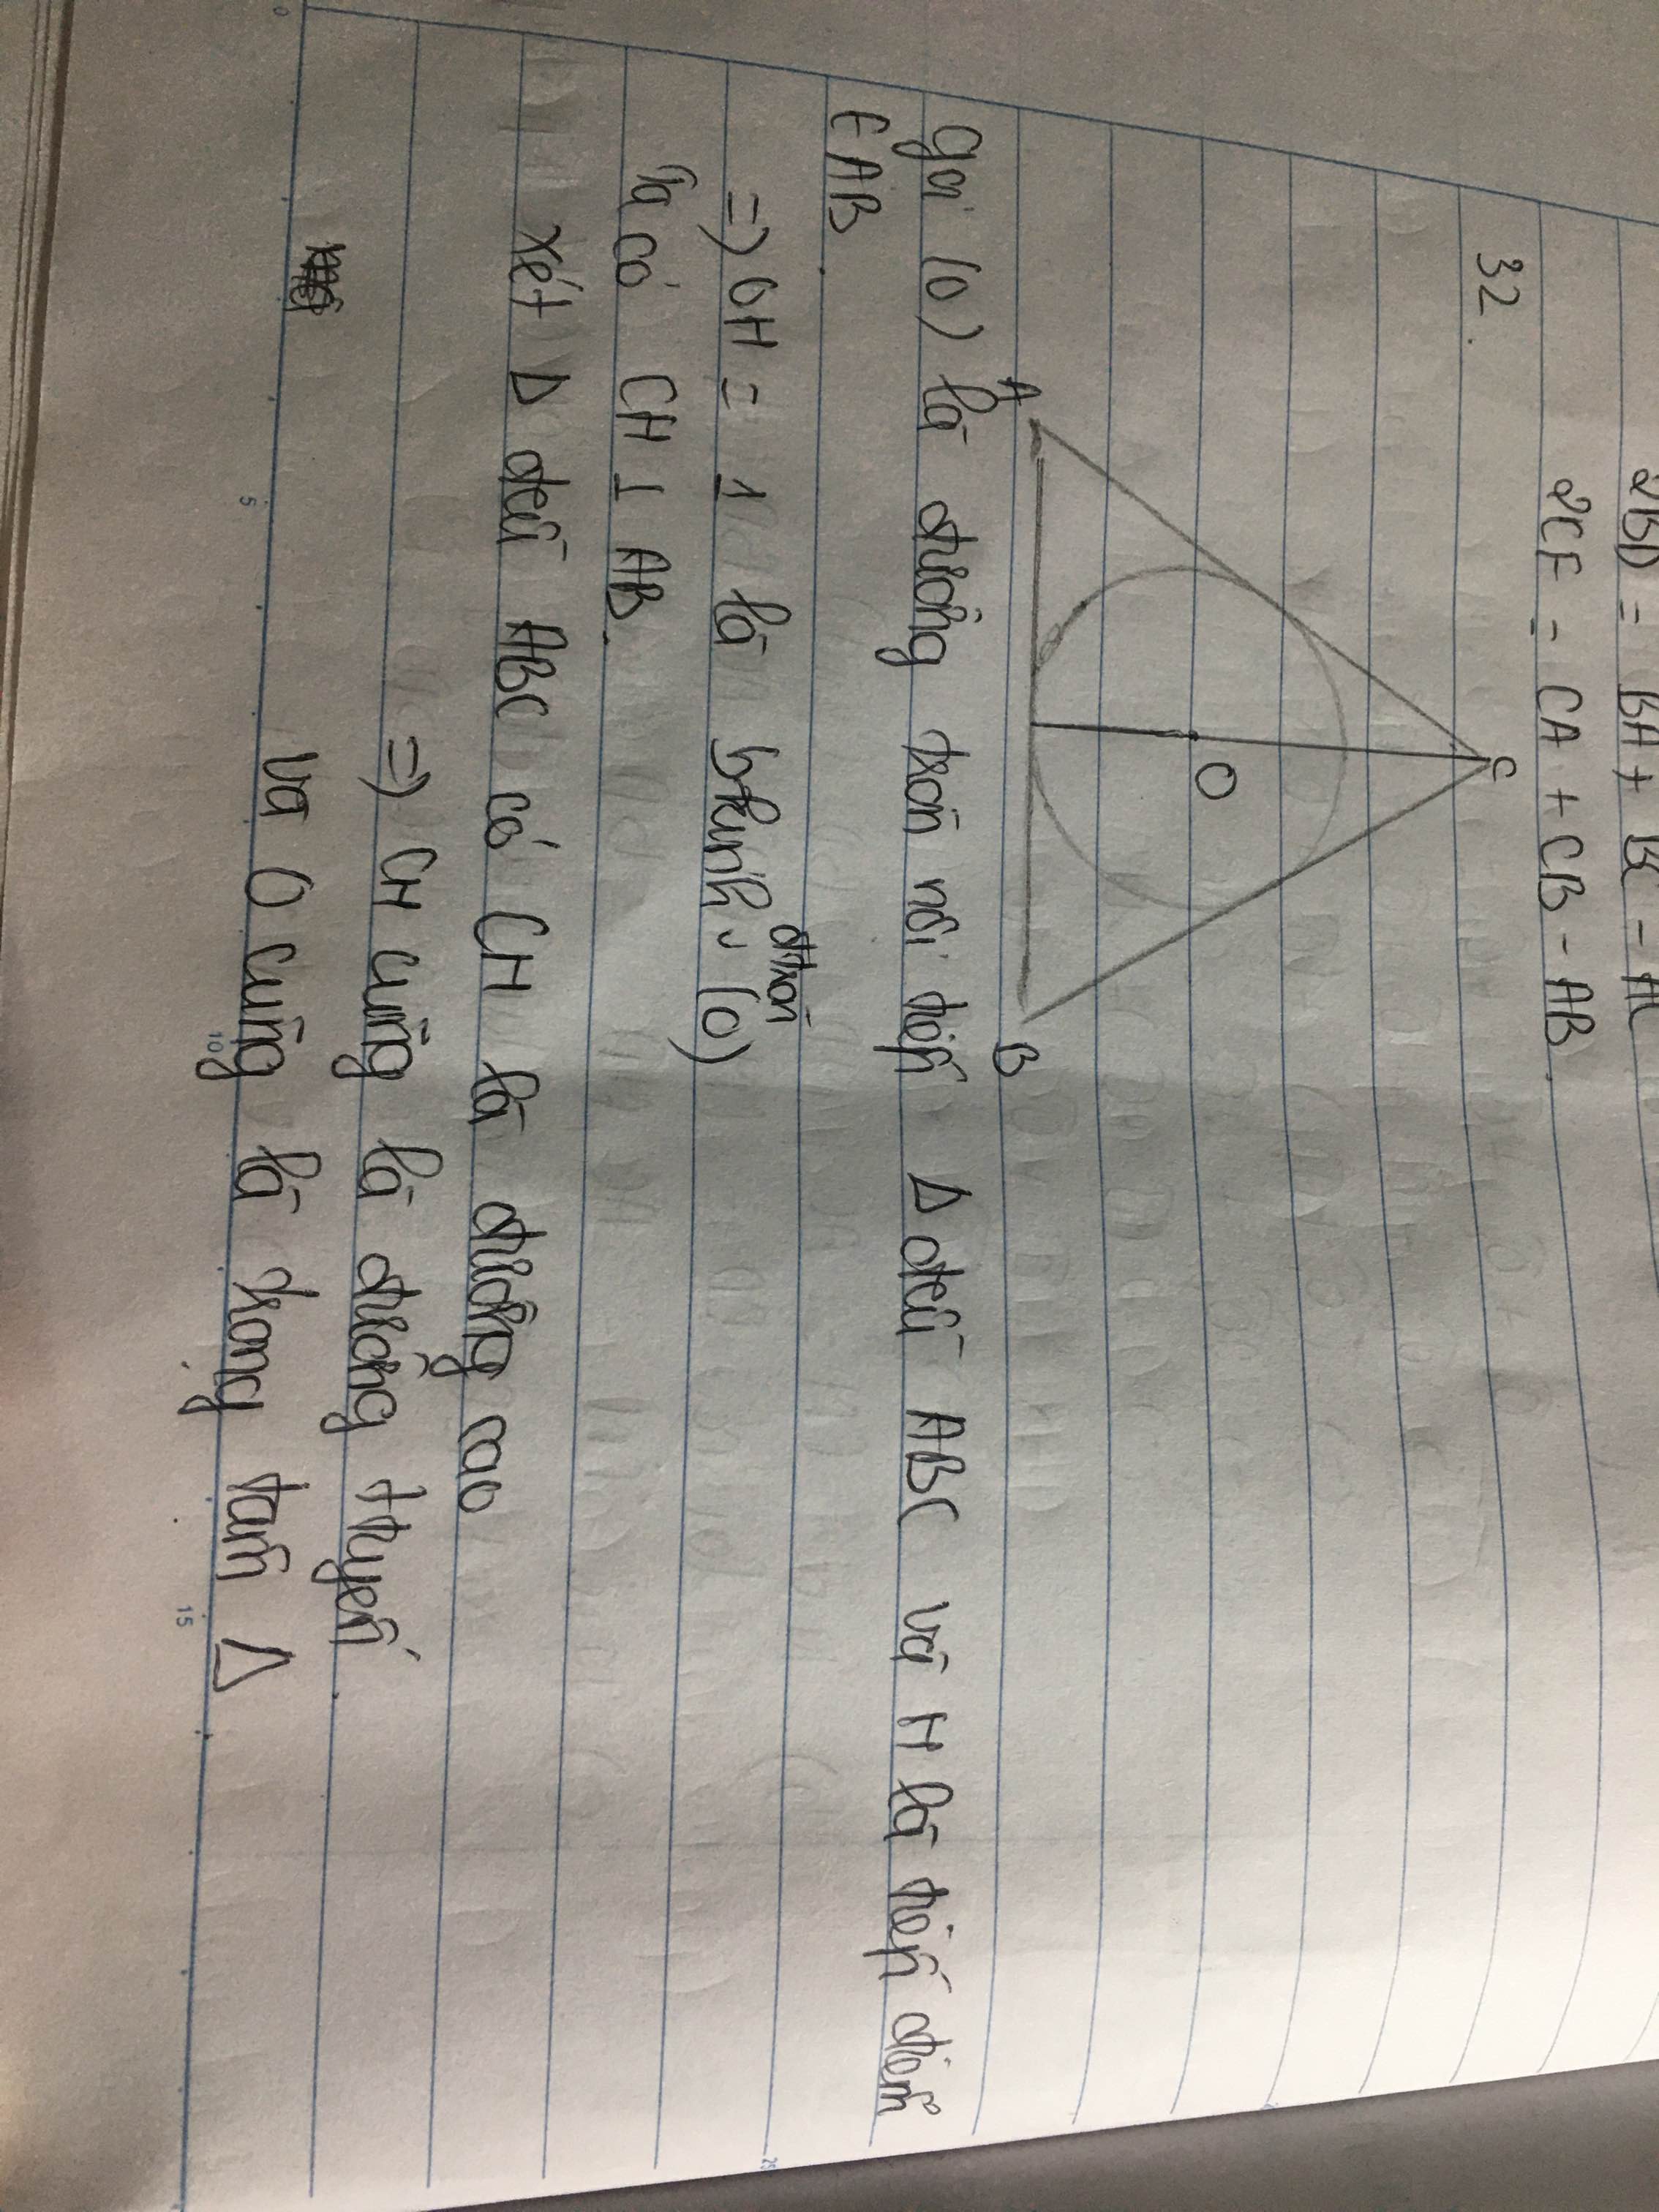 2BD = BA + BC - AC
2CF = CA + CB - AB.
32.
C
O
A
B
gọi (O) là đường tròn nội tiếp Δ đều ABC và H là tiếp điểm
∈ AB.
=) OH = 1 là bkính (O)
đtròn
Ta có CH ⊥ AB.
xét Δ đều ABC có CH là đường cao
=) CH cũng là đường truyến.
và O cũng là trong tâm Δ
0
5
10
15
25